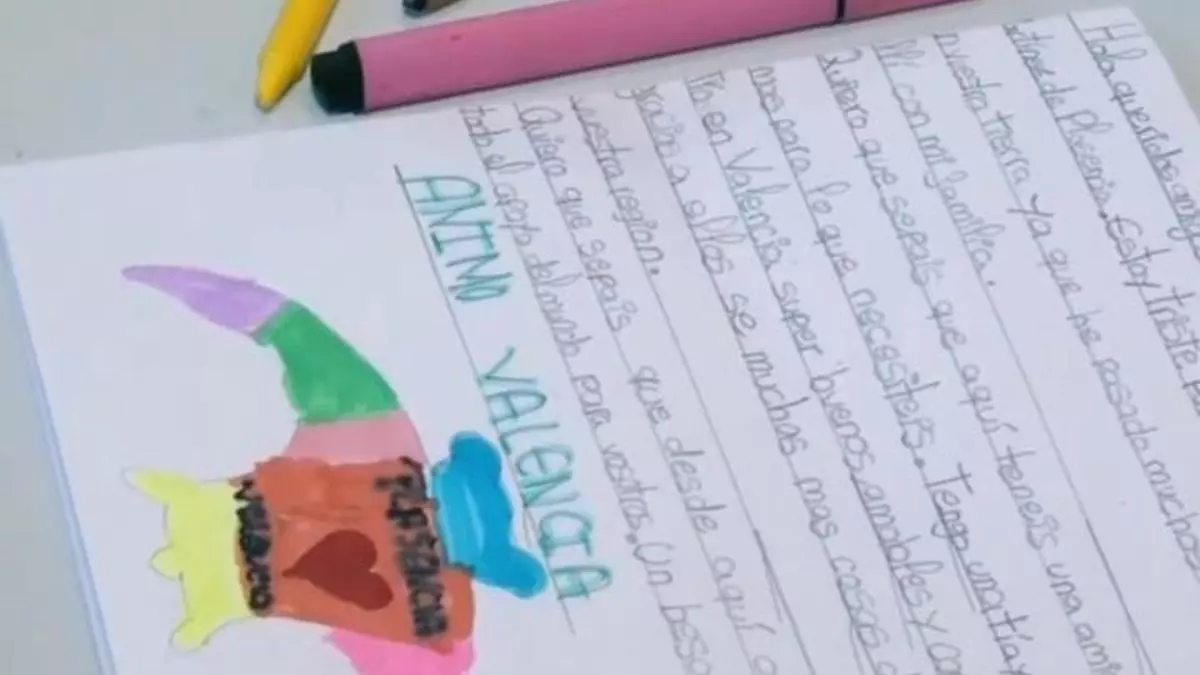 Hola queridos
de Plasencia. Estoy triste
nuestra tierra ya que he pasado muchos
con mi familia.
Quiero que sepais que aquí teneis una ami
mas para lo que necesiteis. Tengo una tía y
en Valencia super buenos, amables y
gracias a ellos se muchas mas cosas
vuestra region.
Quiero que sepais que desde aquí
todo el apoyo del mundo para vostros. Un
ANIMO VALENCIA